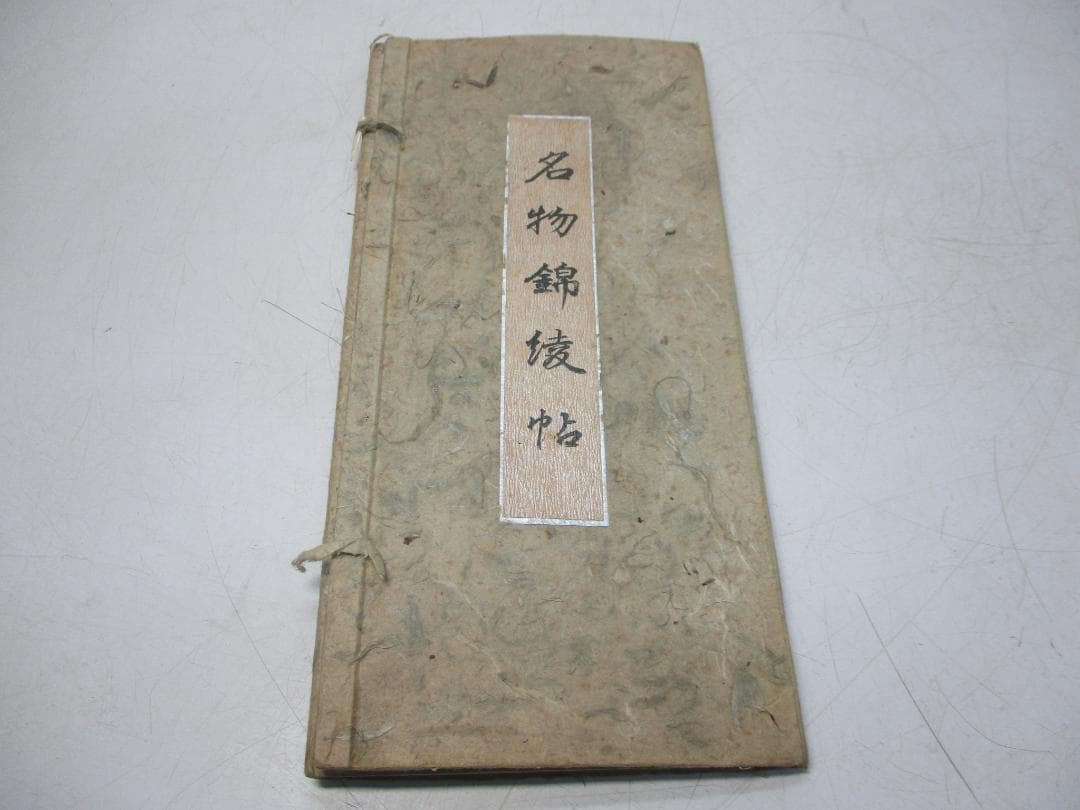 名物錦綾帖